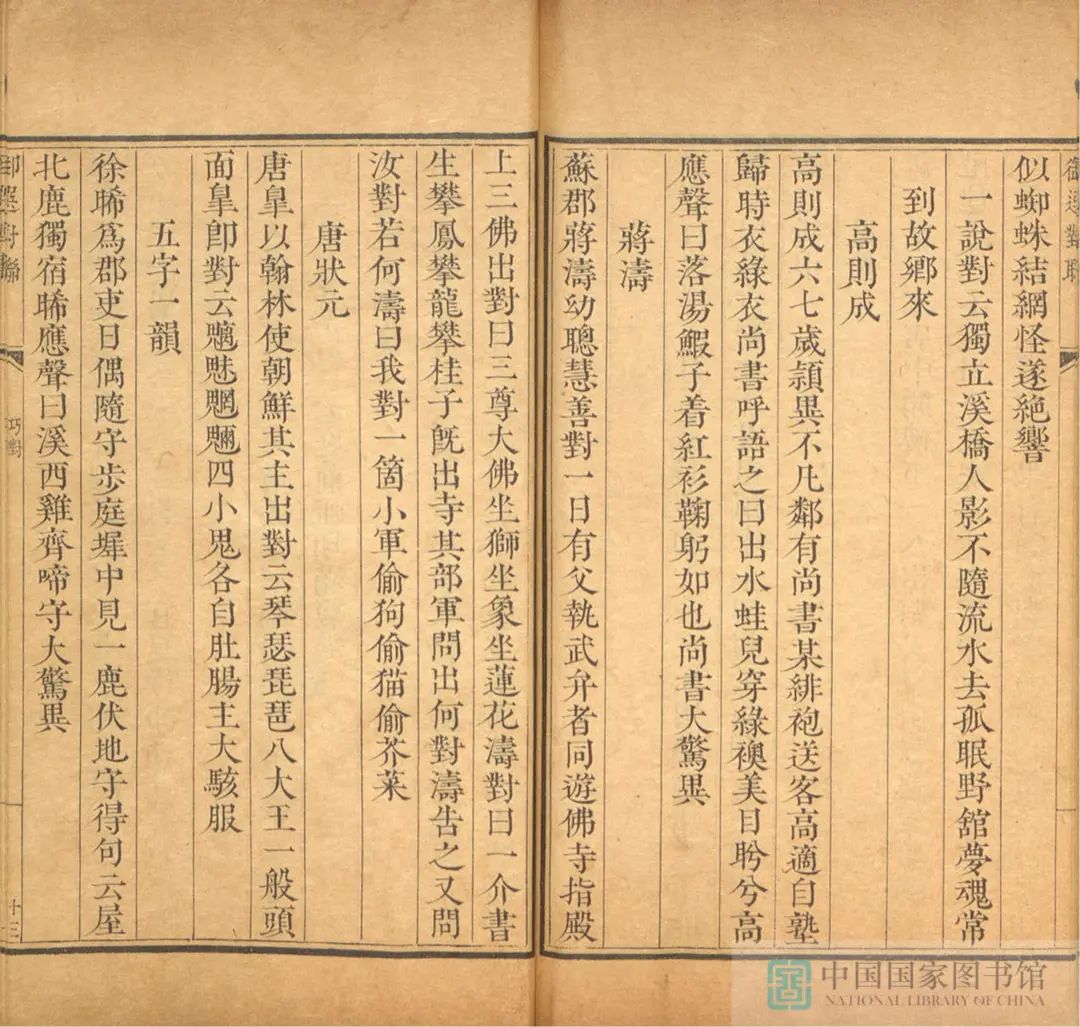 似蜘蛛結網怪遂絶響
一說對云獨立溪橋人影不隨流水去孤眠野舘夢魂常
到故鄉來
高則成
高則成六七歲頴異不凡鄰有尚書某緋袍送客高適自塾
歸時衣綠衣尚書呼語之曰出水蛙兒穿綠襖美目盻兮高
應聲曰落湯鰕子着紅衫鞠躬如也尚書大驚異
蔣濤
蘇郡蔣濤幼聰慧善對一日有父執武弁者同遊佛寺指殿
上三佛出對曰三尊大佛坐獅坐象坐蓮花濤對曰一介書
生攀鳳攀龍攀桂子旣出寺其部軍問出何對濤告之又問
汝對若何濤曰我對一箇小軍偷狗偷猫偷芥菜
唐狀元
唐臯以翰林使朝鮮其主出對云琴瑟琵琶八大王一般頭
面臯卽對云魑魅魍魎四小鬼各自肚腸主大駭服
五字一韻
徐晞爲郡吏日偶隨守步庭墀中見一鹿伏地守得句云屋
北鹿獨宿晞應聲曰溪西雞齊啼守大驚異
巧對
十三
中国国家图书馆
NATIONAL LIBRARY OF CHINA